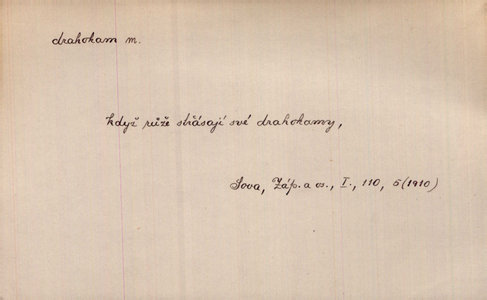 drahokam m.
Když růže střásají své drahokamy,
Sova, Záp. a os., I., 110, 5 (1910)